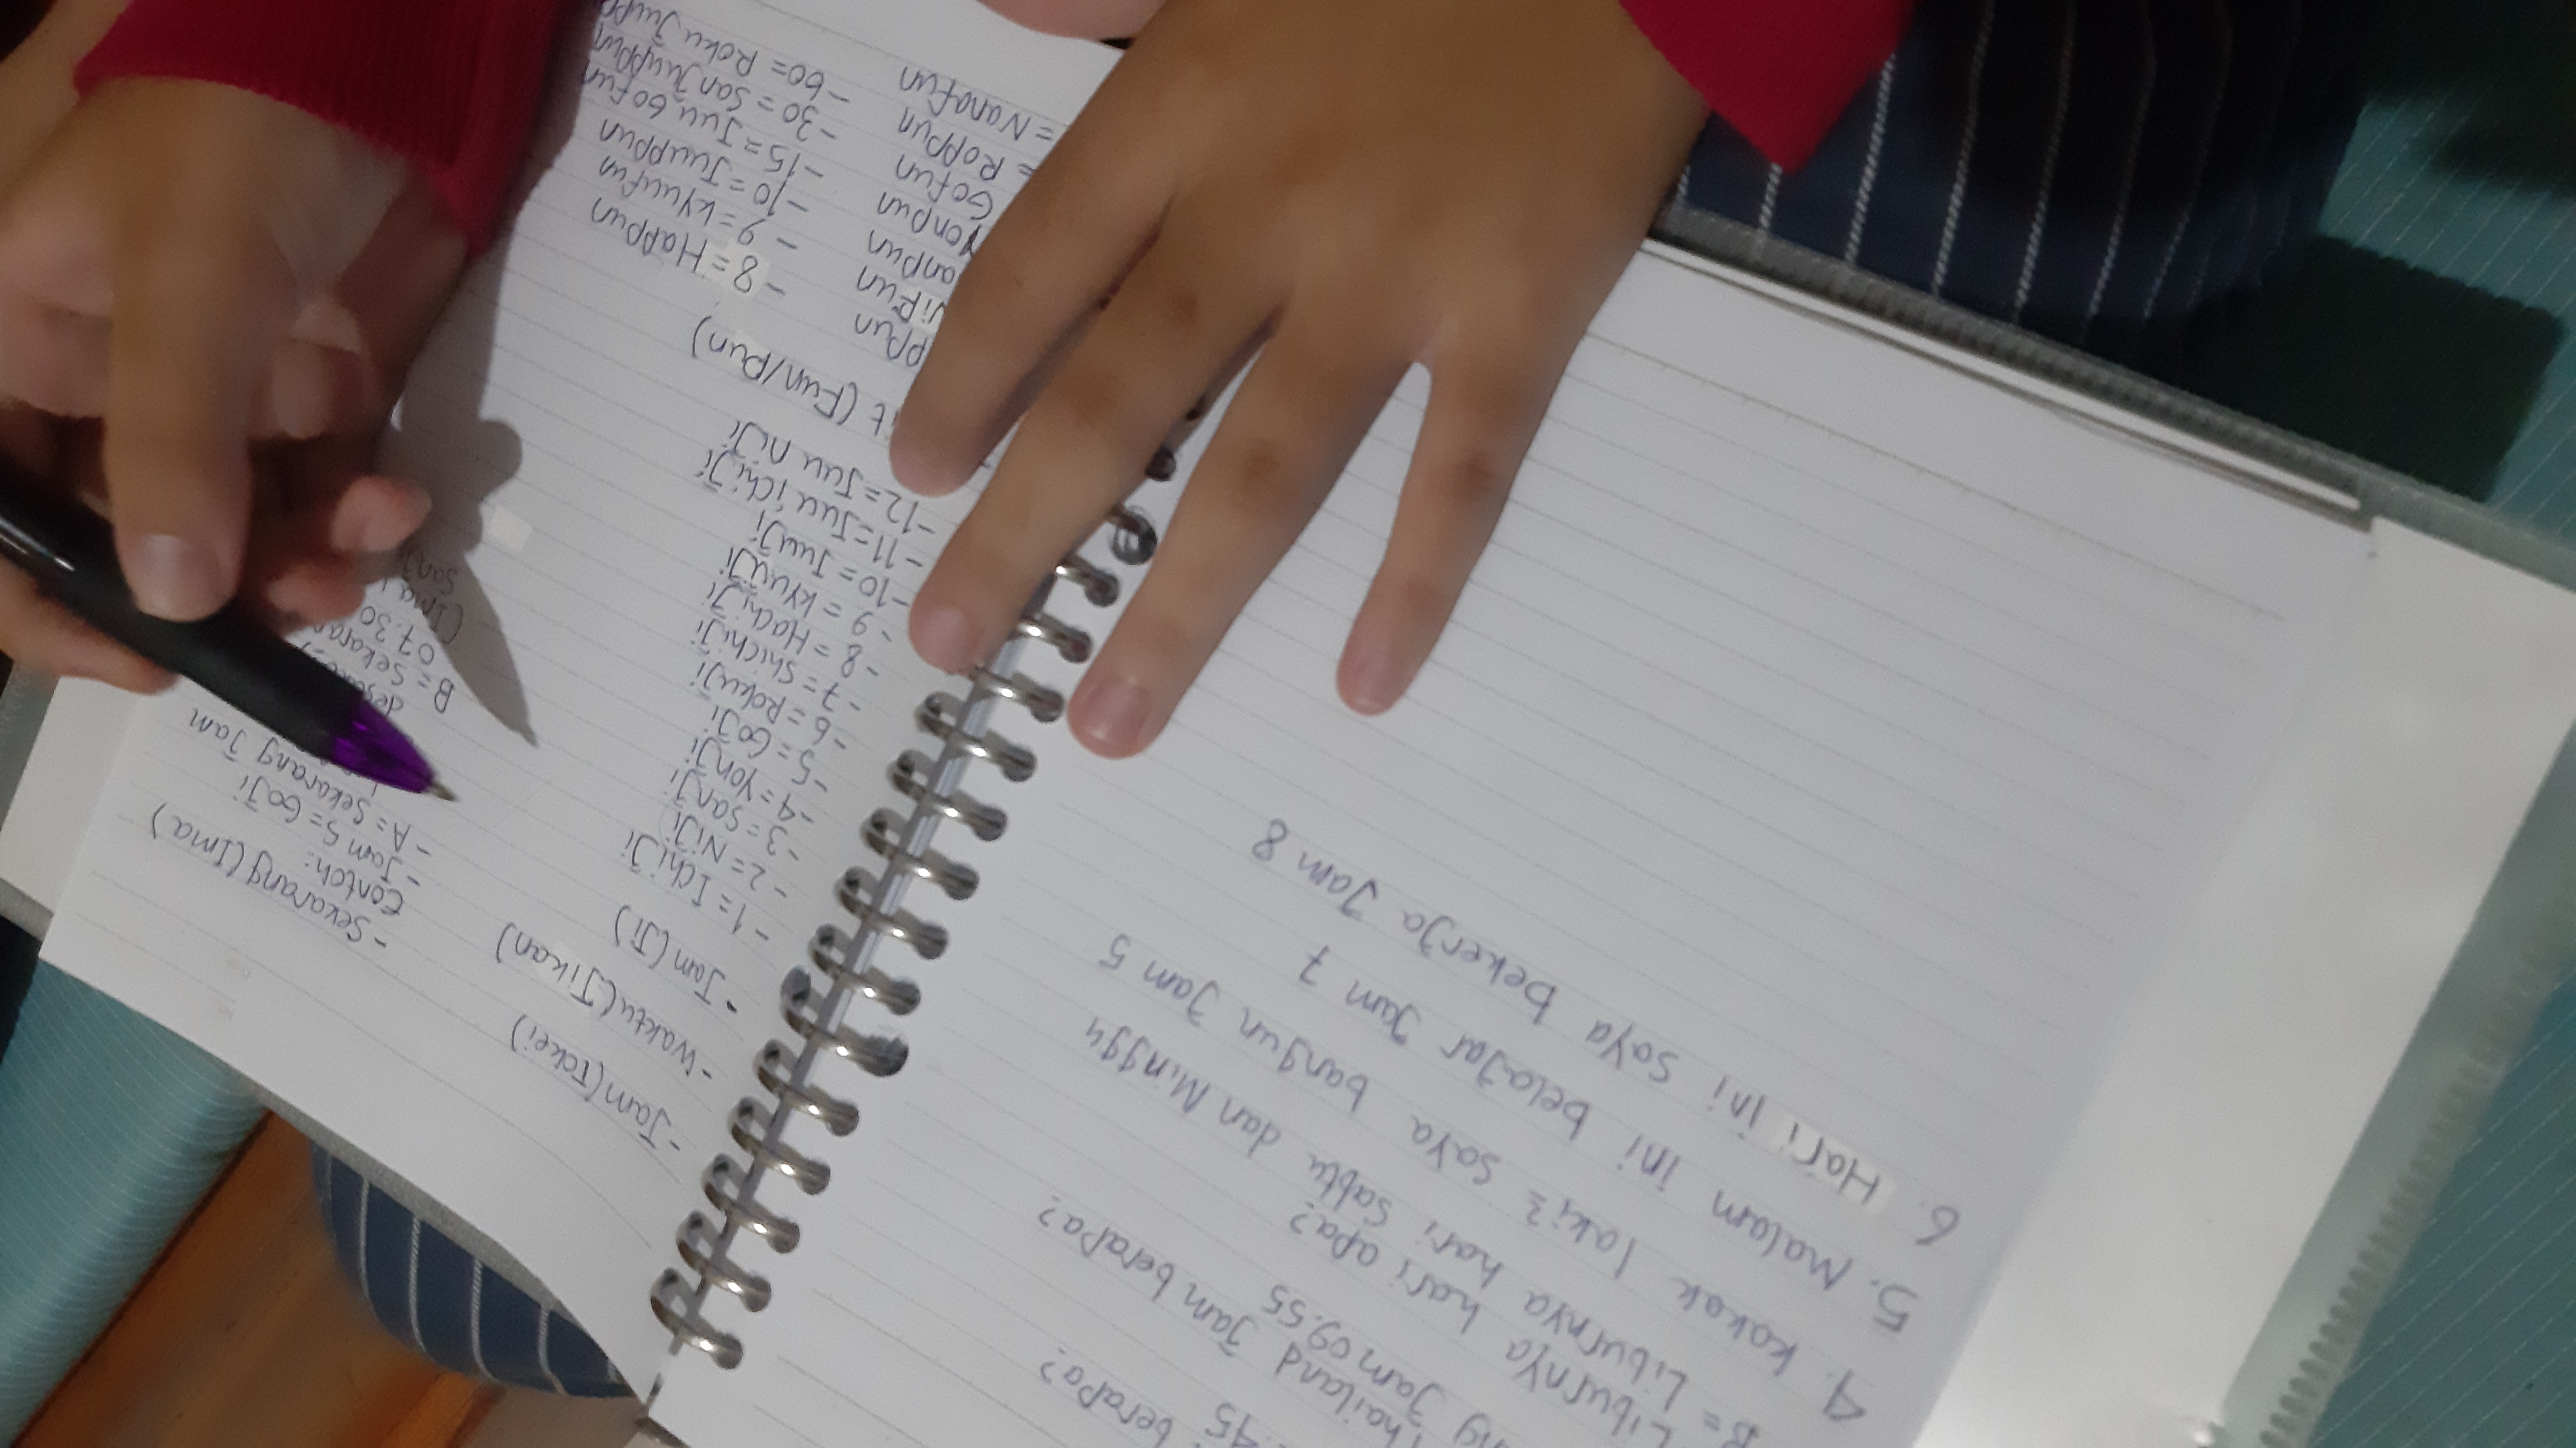 - Jam (Tokei)
- Waktu (Jikan)
• Jam (Ji)
- 1 = Ichi Ji
- 2 = Niji
- 3 = Sanji
- 4 = Yonji
- 5 = Goji
- 6 = Rokuji
- 7 = Shichiji
- 8 = Hachiji
- 9 = Kyuuji
- 10 = Juuji
- 11 = Juu ichiji
- 12 = Juu niji
(Fun/Pun)
= Roppun
= Nanafun
Gofun
- 8 = Happun
- 9 = Kyuufun
- 10 = Juuppun
- 15 = Juu Gofun
- 30 = Sanjuuppun
- 60 = Roku
- Sekarang (Ima)
Contoh:
- Jam 5 = Goji
- A = Sekarang Jam
B =
07.30
(Ima
berapa?
Jam berapa?
Jam 09.55
Liburnya hari apa?
B = Liburnya hari Sabtu dan Minggu
4. Kakak laki² saya bangun Jam 5
5. Malam ini belajar Jam 7
6. Hari ini saya bekerja Jam 8